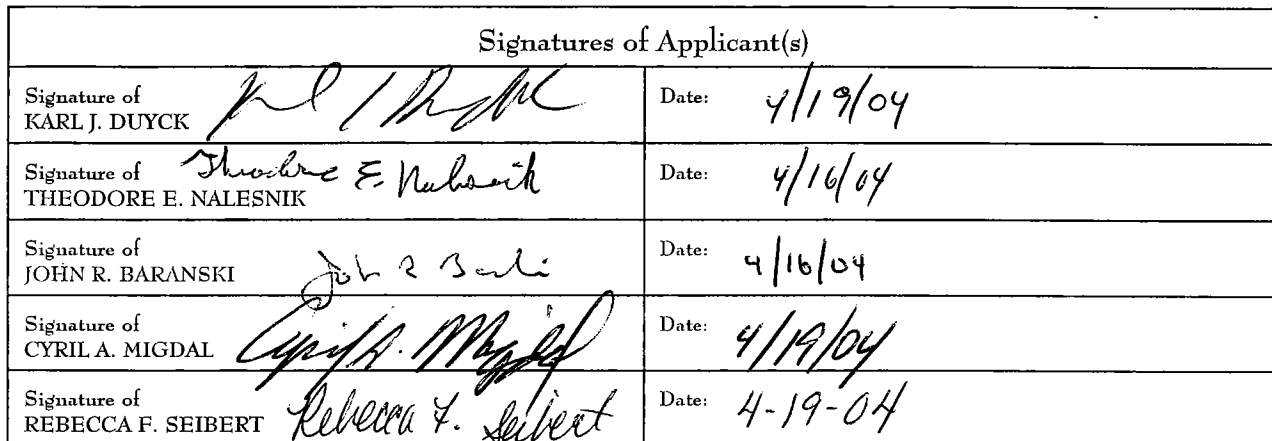 Signatures of Applicant(s)
Signature of
KARL J. DUYCK
Karl J Duyck
Date: 4/19/04
Signature of
THEODORE E. NALESNIK
Theodore E. Nalesnik
Date: 4/16/04
Signature of
JOHN R. BARANSKI
John R Baranski
Date: 4/16/04
Signature of
CYRIL A. MIGDAL
Cyril A. Migdal
Date: 4/19/04
Signature of
REBECCA F. SEIBERT
Rebecca F. Seibert
Date: 4-19-04